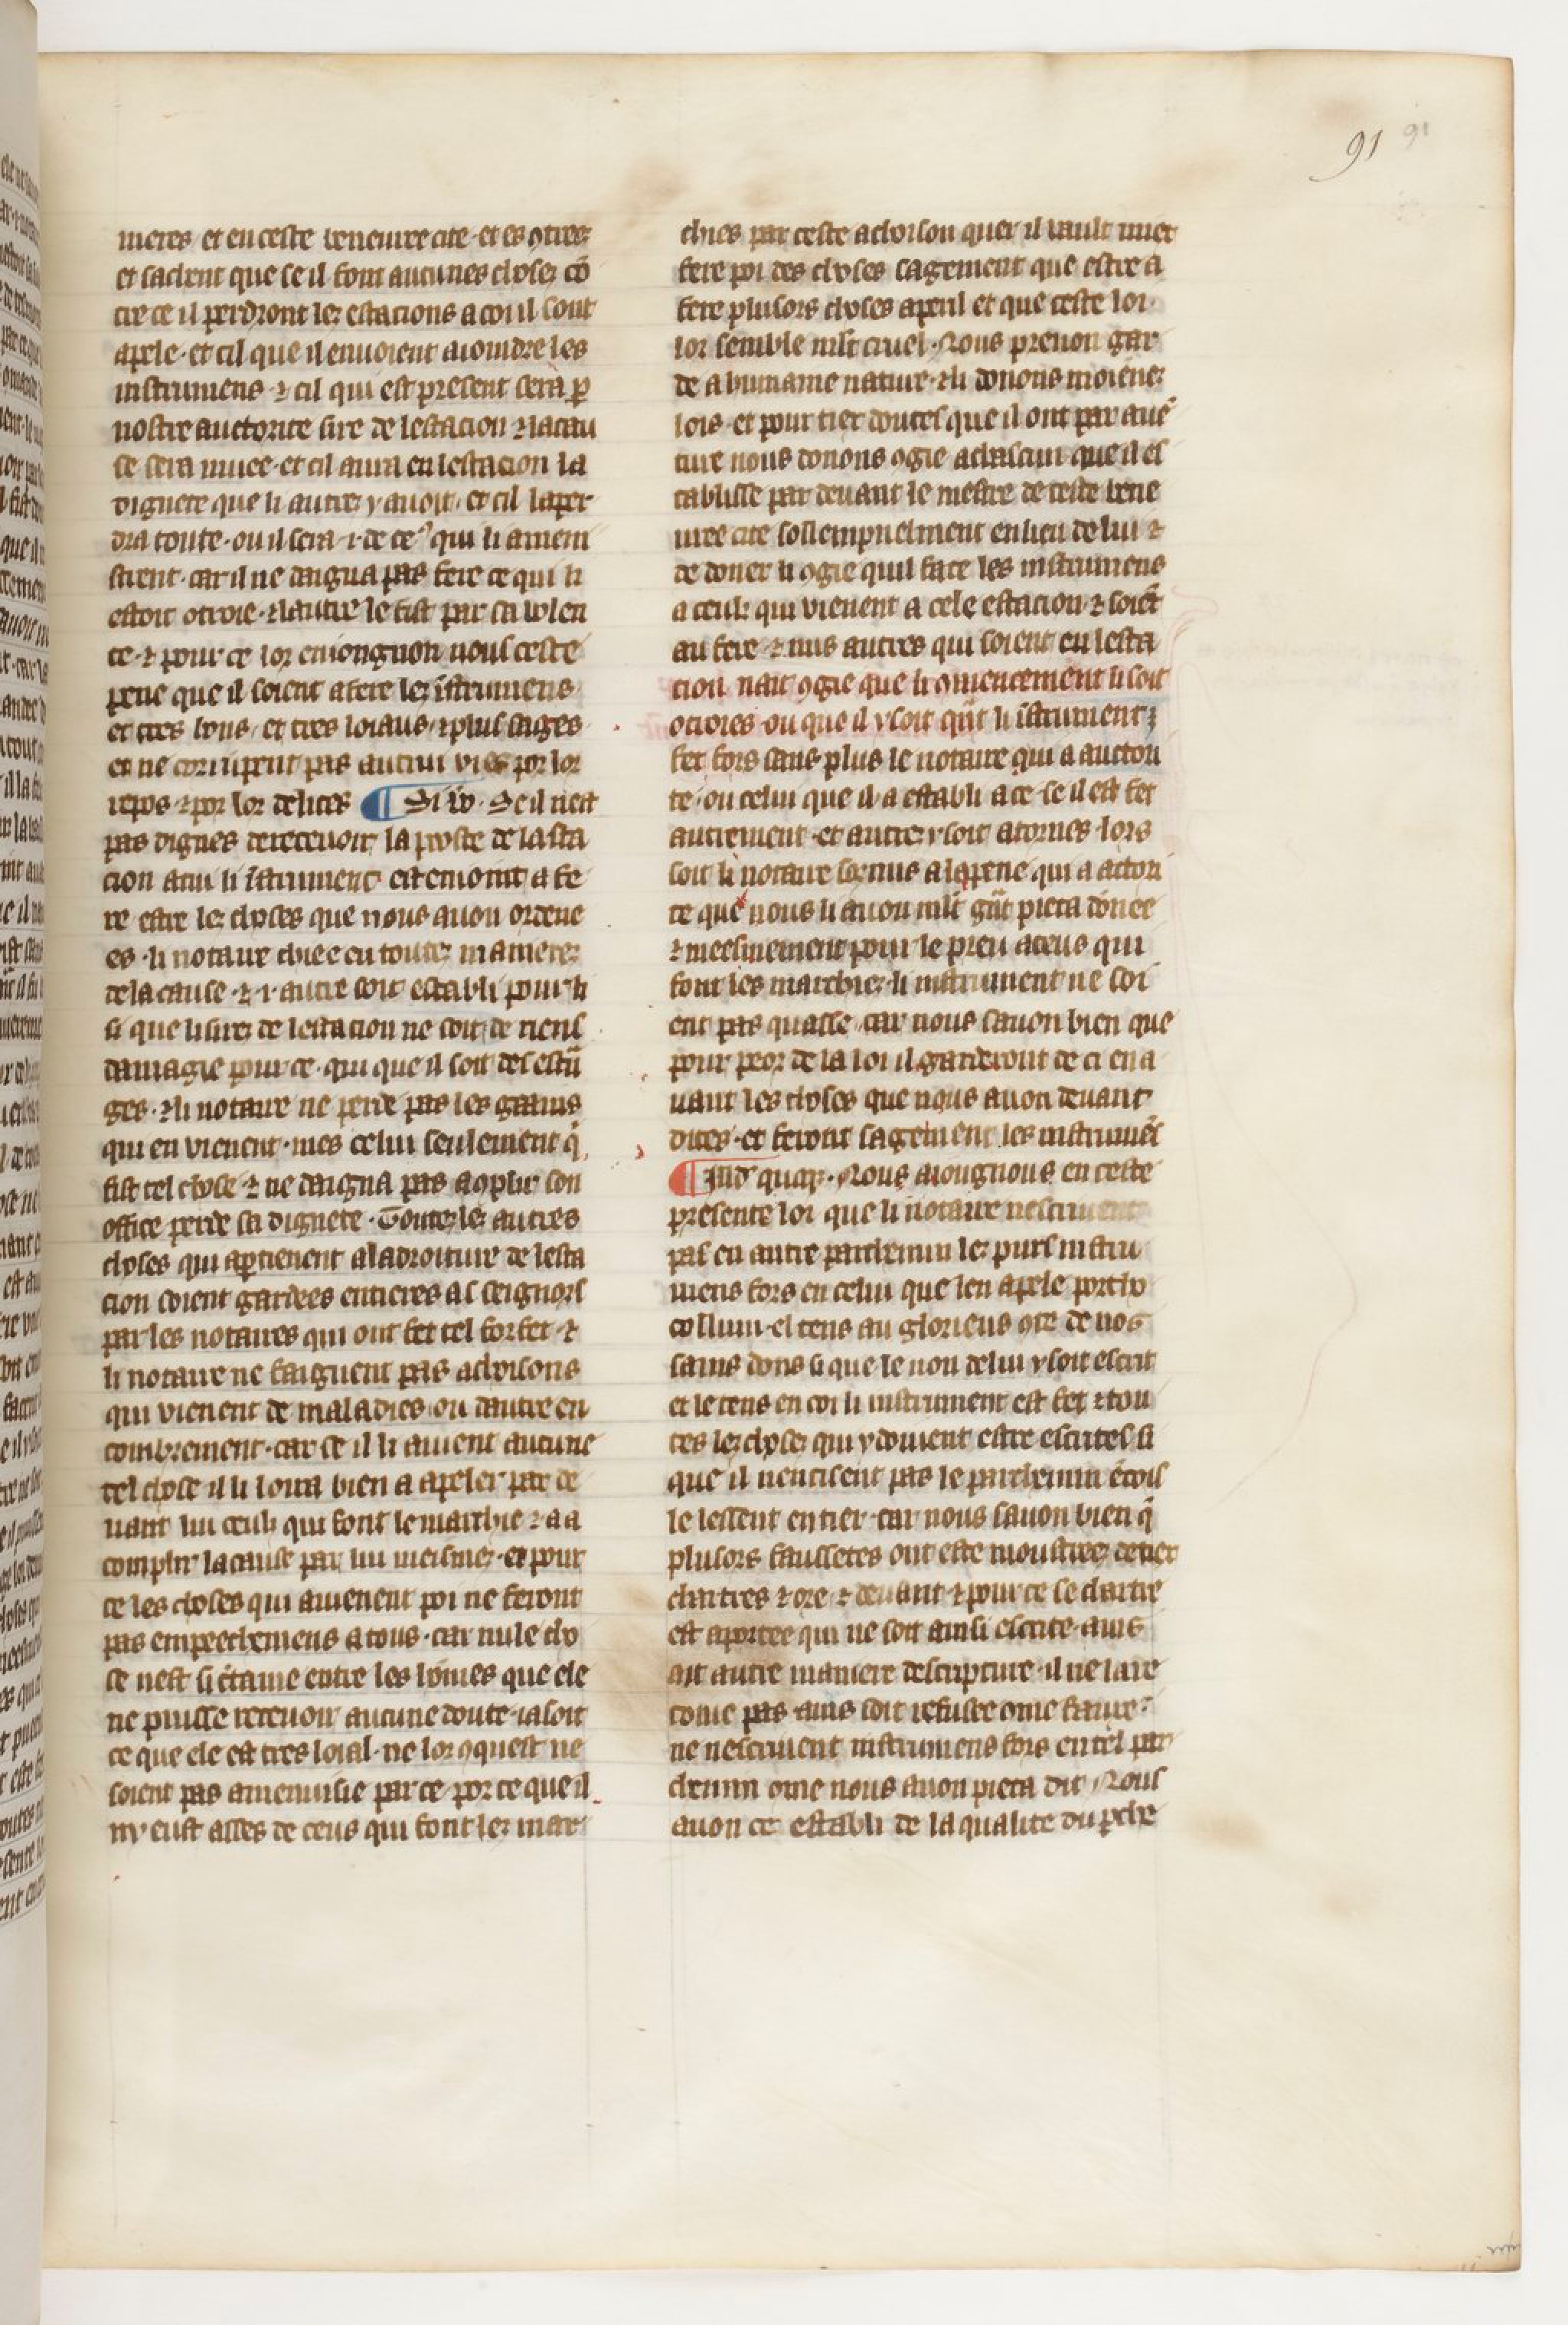 91 91
nieres et en ceste beneuree cite · et es ꝯtrees
et sachent que se il font aucunes choses cō
tre ce il perdront les estacions a coi il sont
apele · et cil que il enuoient a ioindre les
instrumens ⁊ cil qui est present sera ꝑ
nostre auctorite sire de lestacion ⁊ la cau
se sera muee · et cil aura en lestacion la
dignete que li autres y auoit · et cil la per
dra toute · ou il sera · i · de ceˀ qui li ameni
strent · car il ne daigna pas fere ce qui li
estoit otroie · ⁊ lautre le fist par sa volen
te · ⁊ pour ce lor enioignon nous ceste
peine que il soient a fere les īstrumens
et tres bons · et tres loiaus · ⁊ plus sages
et ne corrupent pas autrui vies por lor
repos ⁊ por lor delices ¶ Si ṽo · Se il nest
pas dignes de receuoir la poste de lasta
cion a cui li īstrument est enioint a fe
re estre les choses que nous auon ordene
es · li notaire chiee en toutes manieres
de la cause · ⁊ · i · autre soit establi pour li
si que li sires de lestacion ne soit de riens
damagie pour ce · qui que il soit des estrā
ges · ⁊ li notaire ne perde pas les gaains
qui en vienent · mes celui seulement q̄
fist tel chose ⁊ ne daigna pas aꝯplir son
office perde sa dignete · Toutes les autres
choses qui aꝑtienent a la droiture de lesta
cion soient gardees entieres as seignors
par les notaires qui ont fet tel forfet · ⁊
li notaire ne faignent pas achoisons
qui vienent de maladies ou dautre en
combrement · car se il li auient aucune
tel chose il li loira bien a apeler par de
uant lui ceuls qui font le marchie ⁊ a a
complir la cause par lui meismes · et pour
ce les choses qui auienent poi ne feront
pas empeechemens a tous · car nule cho
se nest si ctaine entre les homes que ele
ne puisse receuoir aucune doute · ia soit
ce que ele est tres loial · ne lor ꝯquest ne
soient pas amenuisie par ce · por ce que il
ny eust asses de ceus qui font les mar
chies par ceste achoison quer il vault miex
fere poi des choses sagement que estre a
fere plusors choses a peril et que ceste loi
lor semble ml̄t cruel · Nous prenon gar
de a humaine nature · ⁊ li donons moienes
lois · et pour tiex doutes que il ont par auē
ture nous donons ꝯgie a chascun que il es
tablisse par deuant le mestre de ceste bene
uree cite sollempnelment en lieu de lui ⁊
de doner li ꝯgie quil face les instrumens
a ceuls qui vienent a cele estacion · ⁊ soiēt
au fere · ⁊ nus autres qui soient en lesta
cion nait ꝯgie que li ꝯmencement li soit
otroies · ou que il y soit qn̄t li īstrument ē
fet fors sans plus le notaire qui a auctori
te · ou celui que il a establi a ce · se il est fet
autrement · et autres y soit atornes · lors
soit li notaire sozmis a la peine qui a actori
te que nous li auon ml̄t gn̄t pieca dōnee
⁊ meesmement pour le preu a ceus qui
font les marchies · li instrument ne soi
ent pas quasse · car nous sauon bien que
pour peor de la loi il garderont de ci en a
uant les choses que nous auon deuant
dites · et feront sagement les instrumēs
¶ Ind̄ quar̄ · Nous aiougnous en ceste
presente loi que li notaire nescriuent
pas en autre parchemin les purs instru
mens fors en celui que len apele portho
collum · el tens au glorieus ꝯte de nos
sains dons si que le non de lui y soit escrit
et le tens en coi li instrument est fet ⁊ tou
tes les choses qui y doiuent estre escrites si
que il nentisent pas le parchemin ēcois
le lessent entier · car nous sauon bien q̄
plusors faussetes ont este moustrees de tiex
chartres ⁊ ore ⁊ deuant ⁊ pour ce se chartre
est aportee qui ne soit ainsi escrite · ains
ait autre maniere descripture · il ne la re
coiue pas · ains soit refusee ꝯme fause ·
ne nescriuent instrumens fors en tel par
chemin ꝯme nous auon pieca dit · Nous
auon ce establi de la qualite du ꝑche